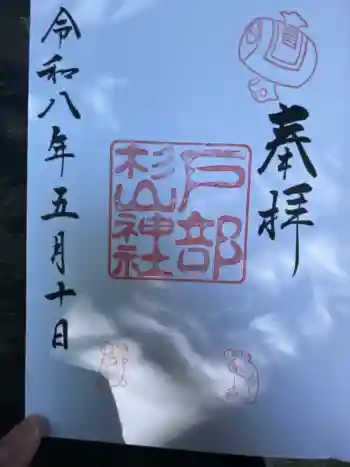 奉拝
戸部
杉山神社
令和八年五月十日